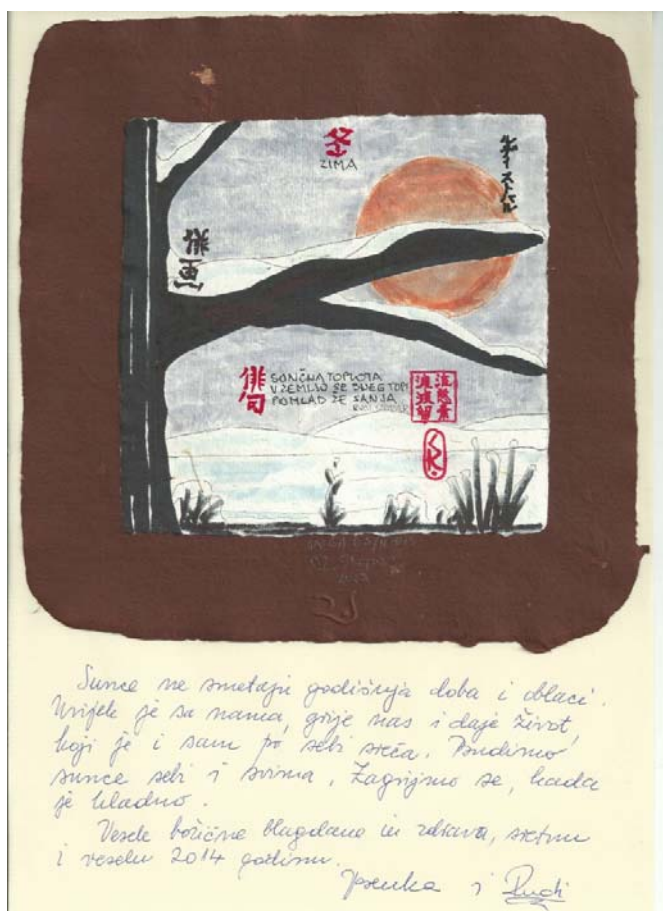 冬
ZIMA
俳画
俳句
SONČNA TOPLOTA
V ZEMLJO SE SNEG TOPI
POMLAD ŽE SANJA
RUDI STOPAR
Sunce ne smetaju godišnja doba i oblaci.
Uvijek je sa nama, grije nas i daje život,
koji je i sam po sebi sreća. Budimo
sunce sebi i svima. Zagrijmo se, kada
je hladno.
Vesele božićne blagdane in zdravu, sretnu
i veselu 2014 godinu.
i Rudi